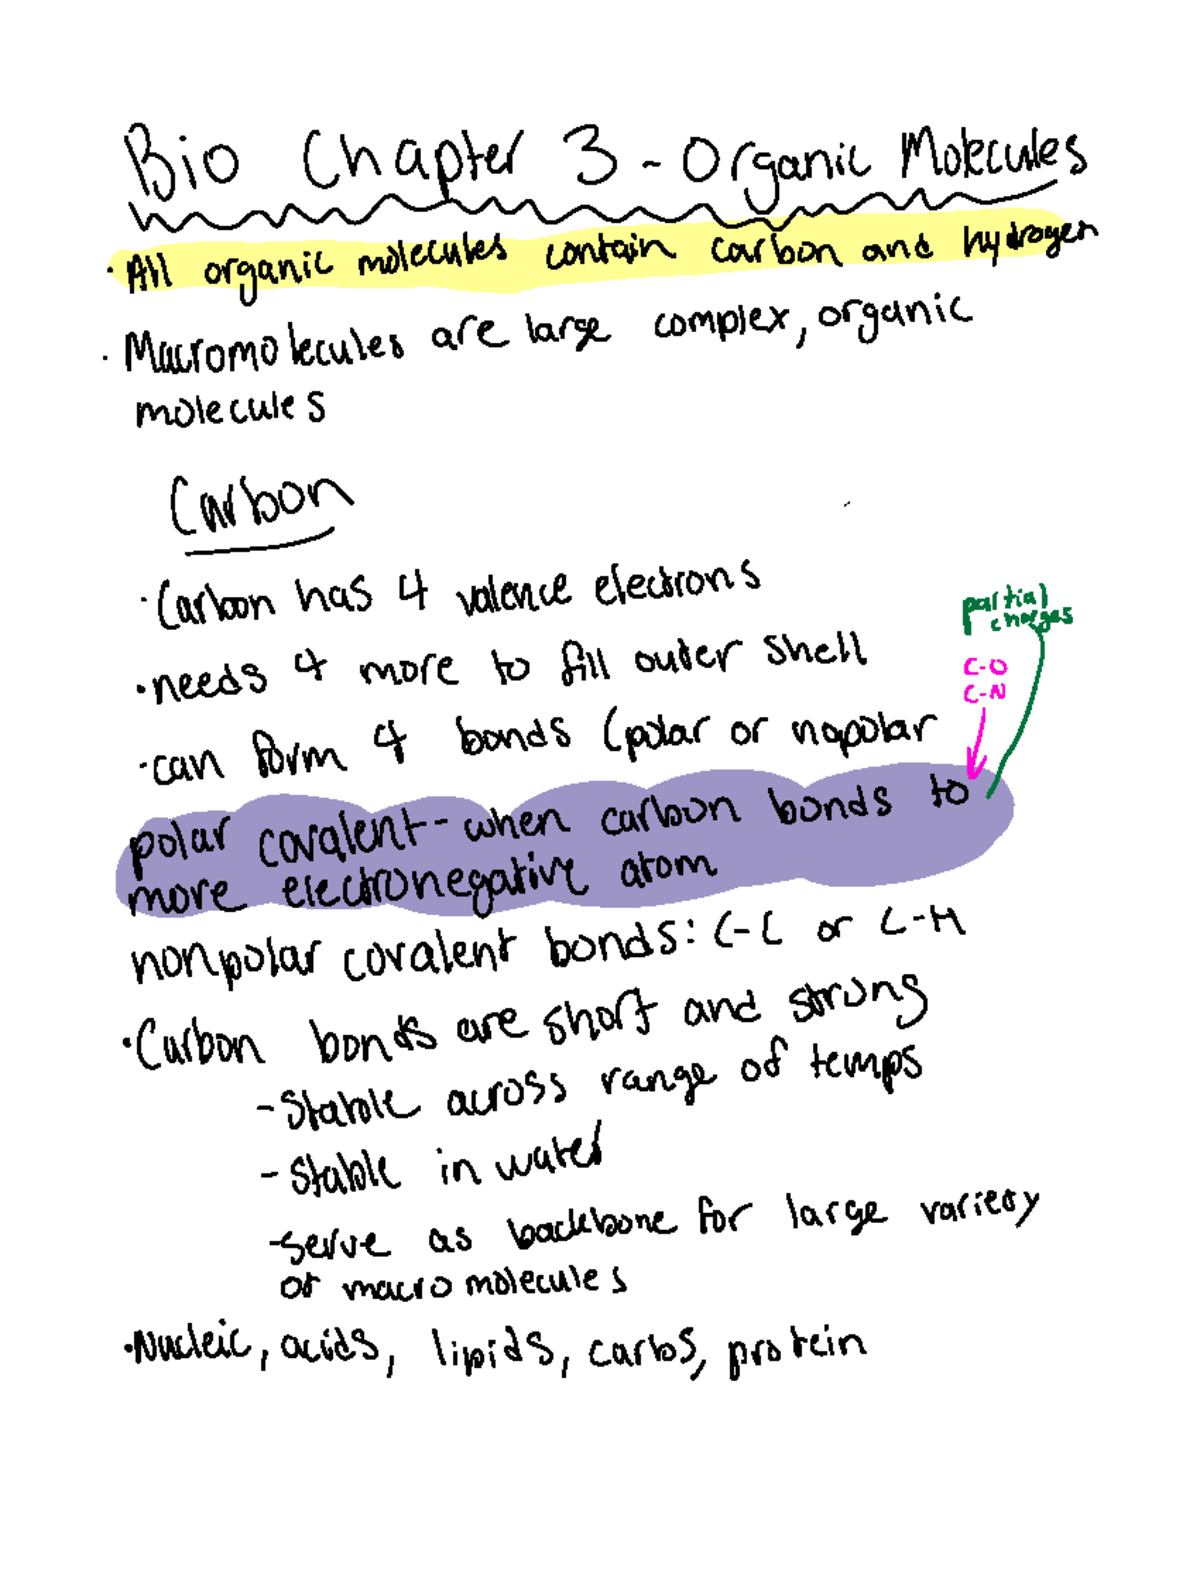 Bio Chapter 3 - Organic Molecules
· All organic molecules contain carbon and hydrogen
· Macromolecules are large complex, organic
molecules
Carbon
· Carbon has 4 valence electrons
partial
charges
· needs 4 more to fill outer shell
C-O
C-N
· can form 4 bonds (polar or nopolar
polar covalent - when carbon bonds to
more electronegative atom
nonpolar covalent bonds: C-C or C-H
· Carbon bonds are short and strong
- Stable across range of temps
- Stable in water
- serve as backbone for large variety
of macromolecules
· Nucleic, acids, lipids, carbs, protein